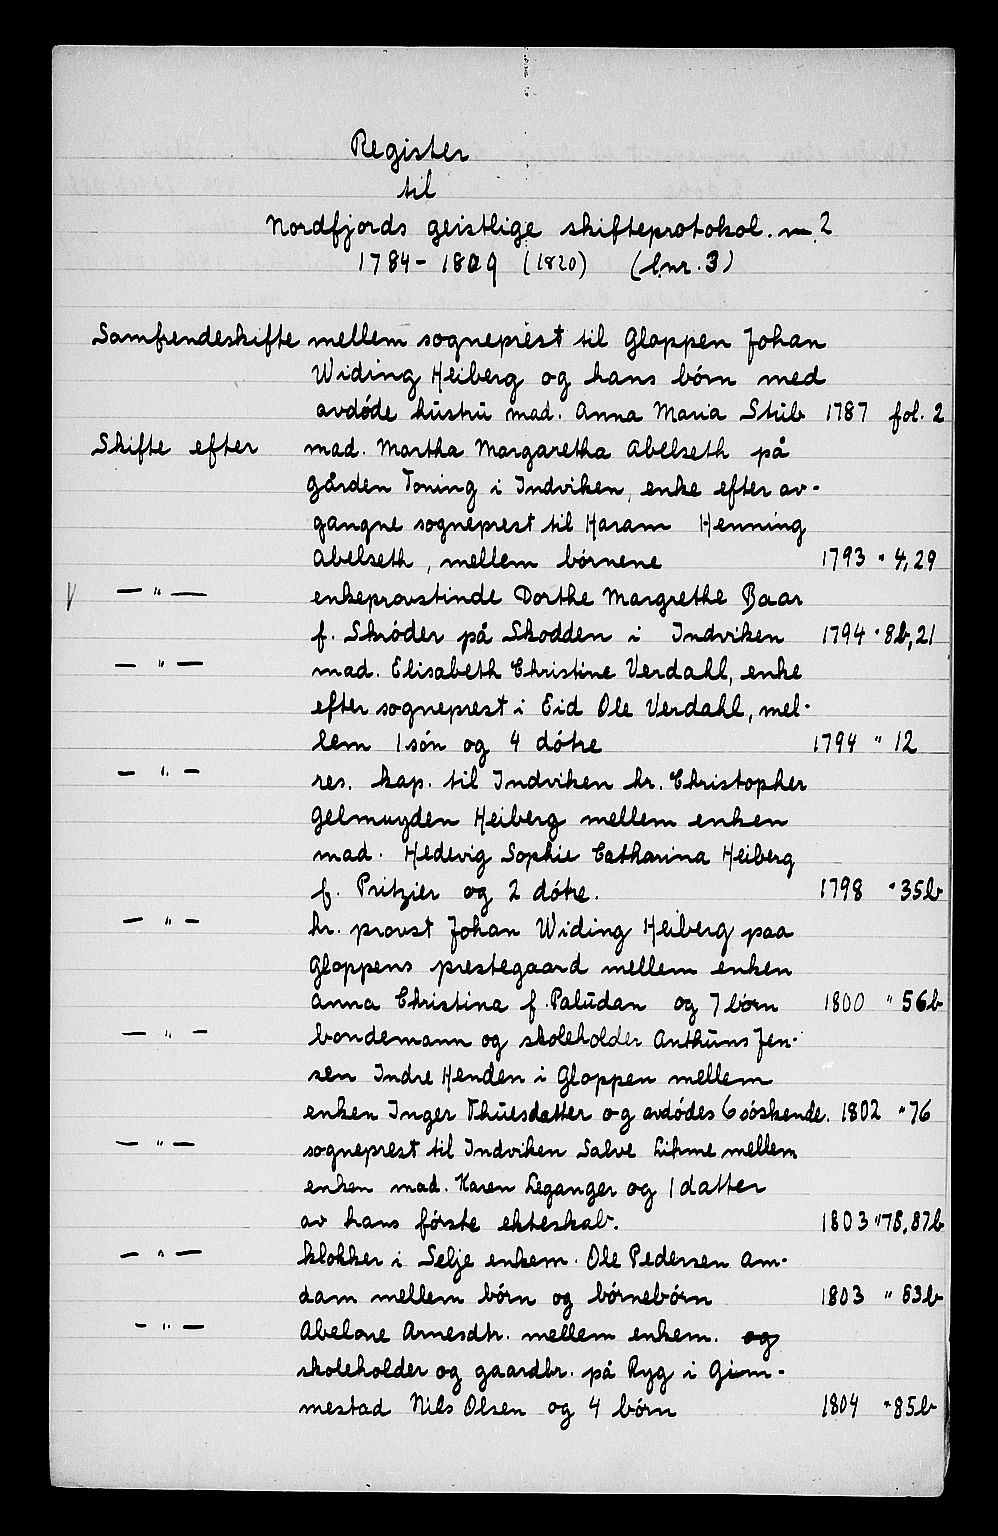 Register
til
Nordfjords geistlige skifteprotokol. nr. 2
1784 - 1809 (1820) (lnr. 3)
Samfrendeskifte mellem sogneprest til Gloppen Johan
Widing Heiberg og hans børn med
avdøde hustru mad. Anna Maria Stub 1787 fol. 2
Skifte efter mad. Martha Margaretha Abelseth på
gården Toning i Indviken, enke efter av-
gangne sogneprest til Haram Henning
Abelseth, mellem børnene 1793 " 4,29
V — " — enkeprovstinde Dorthe Margrethe Baar
f. Skrøder på Skodden i Indviken 1794 " 8b,21
— " — mad. Elisabeth Christine Verdahl, enke
efter sogneprest i Eid Ole Verdahl, mel-
lem 1 søn og 4 døtre 1794 " 12
— " — res. kap. til Indviken hr. Christopher
Gelmuyden Heiberg mellem enken
mad. Hedevig Sophie Catharina Heiberg
f. Pritzier og 2 døtre. 1798 " 35b
— " — hr. provst Johan Widing Heiberg paa
Gloppens prestegaard mellem enken
Anna Christina f. Paludan og 7 børn 1800 " 56b
— " — bondemann og skoleholder Anthuns Jen-
sen Indre Henden i Gloppen mellem
enken Inger Thuesdatter og avdødes 6 søskende. 1802 " 76
— " — sogneprest til Indviken Salve Lihme mellem
enken mad. Karen Leganger og 1 datter
av hans første ekteskab. 1803 " 78,87b
— " — klokker i Selje enkem. Ole Pedersen Am-
dam mellem børn og børnebørn 1803 " 83b
— " — Abelone Arnesdtr. mellem enkem. og
skoleholder og gaardbr. på Ryg i Gim-
mestad Nils Olsen og 4 børn 1804 " 85b